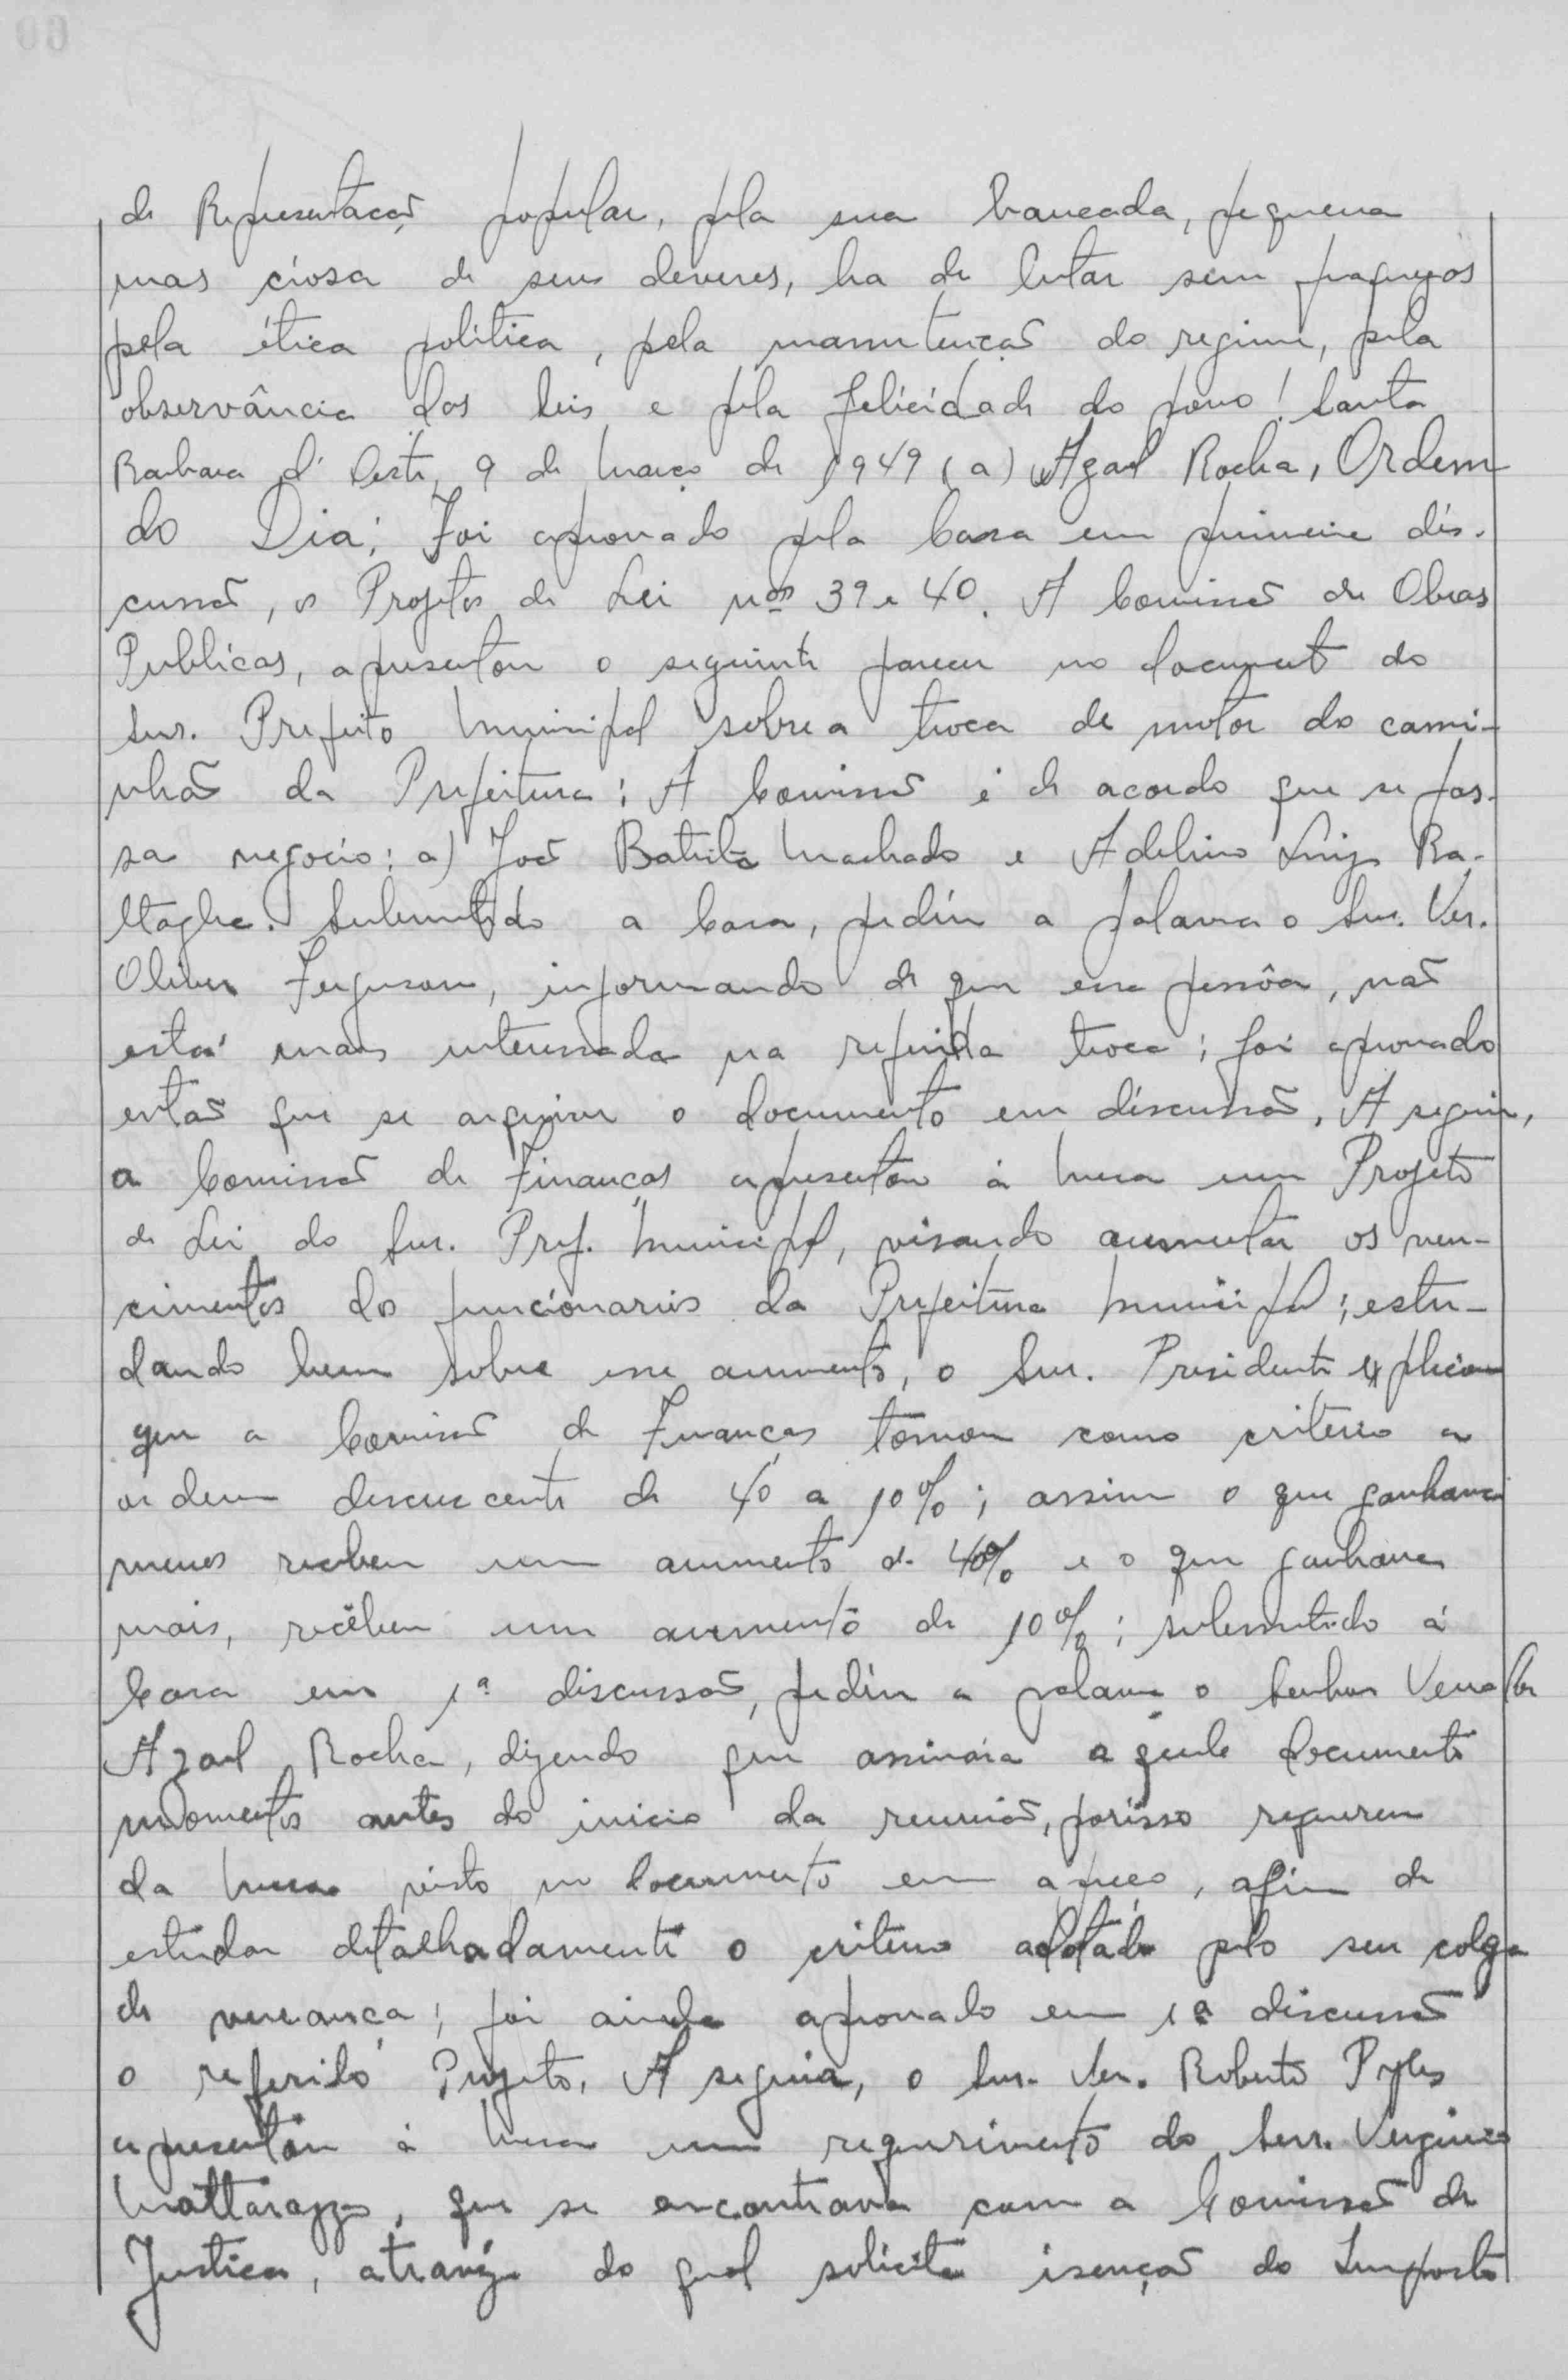 de Representação popular, pela sua bancada, pequena
mas ciosa de seus deveres, ha de lutar sem
pela ética politica, pela manutenção do regime, pela
observância das leis e pela felicidade do povo! Santa
Barbara d'Oeste, 9 de Março de 1949 (a) Azael Rocha, Ordem
do Dia: Foi aprovado pela Casa em primeira dis-
cussão, os Projetos de Lei nos 39 e 40. A Comissão de Obras
Publicas, apresentou o seguinte parecer no documento do
Snr. Prefeito Municipal sobre a troca de motor do cami-
nhão da Prefeitura: A Comissão é de acordo que se fas-
sa negocio: a) João Batista Machado e Adelino Luiz Ba-
ttaglia. Submetido a Casa, pediu a palavra o Snr. Ver.
Oliver Ferguson, informando de que essa pessôa, não
está mais interessada na referida troca; foi aprovado
então que se arquive o documento em discussão. A seguir,
a Comissão de Finanças apresentou á Mesa um Projeto
de Lei do Snr. Pref. Municipal, visando aumentar os ven-
cimentos dos funcionarios da Prefeitura Municipal; estu-
dando bem sobre esse aumento, o Snr. Presidente explicou
que a Comissão de Finanças tomou como criterio a
ordem descrecente de 40 a 10%; assim o que ganhava
menos recebeu um aumento de 40% e o que ganhava
mais, recebeu um aumento de 10%; submetido á
Casa em 1ª discussão, pediu a palavra o Senhor Vereador
Azael Rocha, dizendo que assinára aquele documento
momentos antes do inicio da reunião, porisso requereu
da Mesa visto no documento em apreço, afim de
estudar detalhadamente o criterio adotado pelo seu colega
de vereança; foi ainda aprovado em 1ª discussão
o referido Projeto. A seguir, o Snr. Ver. Roberto Pyles
apresentou á Mesa um requerimento do Snr. Verginio
Mattarazzo, que se encontrava com a Comissão de
Justica, atravéz do qual solicita isenção do Imposto